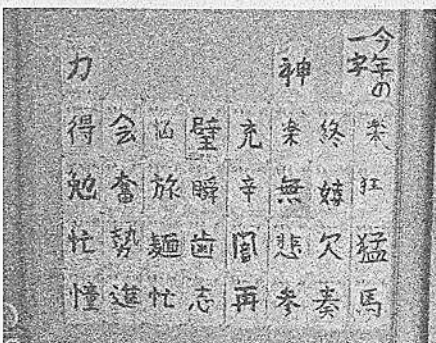 今年の
一字
楽狂猛馬
終嬉欠奏
神楽無悲参
充辛闇再
壁瞬歯志
悩旅麺忙
会奮勢進
力得勉忙憧